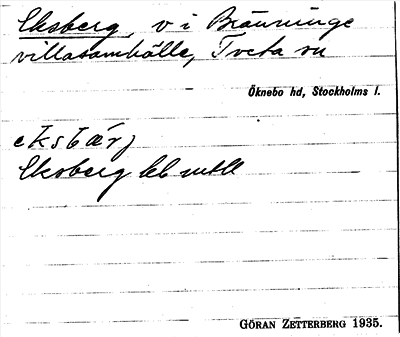 Eksberg, v i Bränninge
villasamhälle, Tveta sn
Öknebo hd, Stockholms l.
eksbærj
Eksberg
GÖRAN ZETTERBERG 1935.